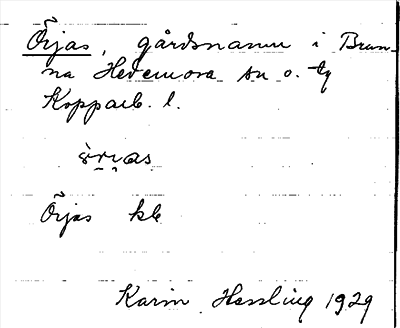 Örjas, gårdsnamn i Brun-
na Hedemora sn o. tg
Kopparb. l.
Örjas kb
Karin Hessling 1929